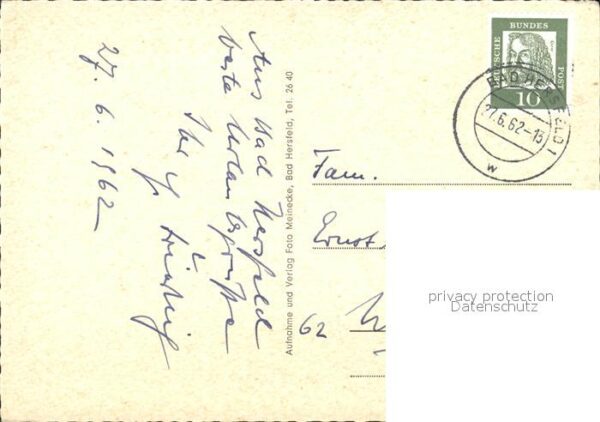 27. 6. 1962
Aus Bad Hersfeld
beste Urlaubsgrüße
Ihr
Aufnahme und Verlag Foto Meinecke, Bad Hersfeld, Tel. 26 40
DEUTSCHE
BUNDES
POST
10
BAD HERSFELD 1
27.6.62-13
w
Fam.
Ernst
62
privacy protection
Datenschutz